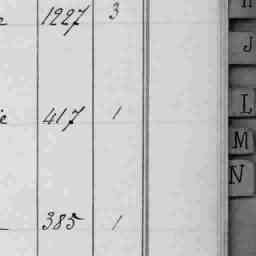 1227 3
417 1
385 1
J
L
M
N